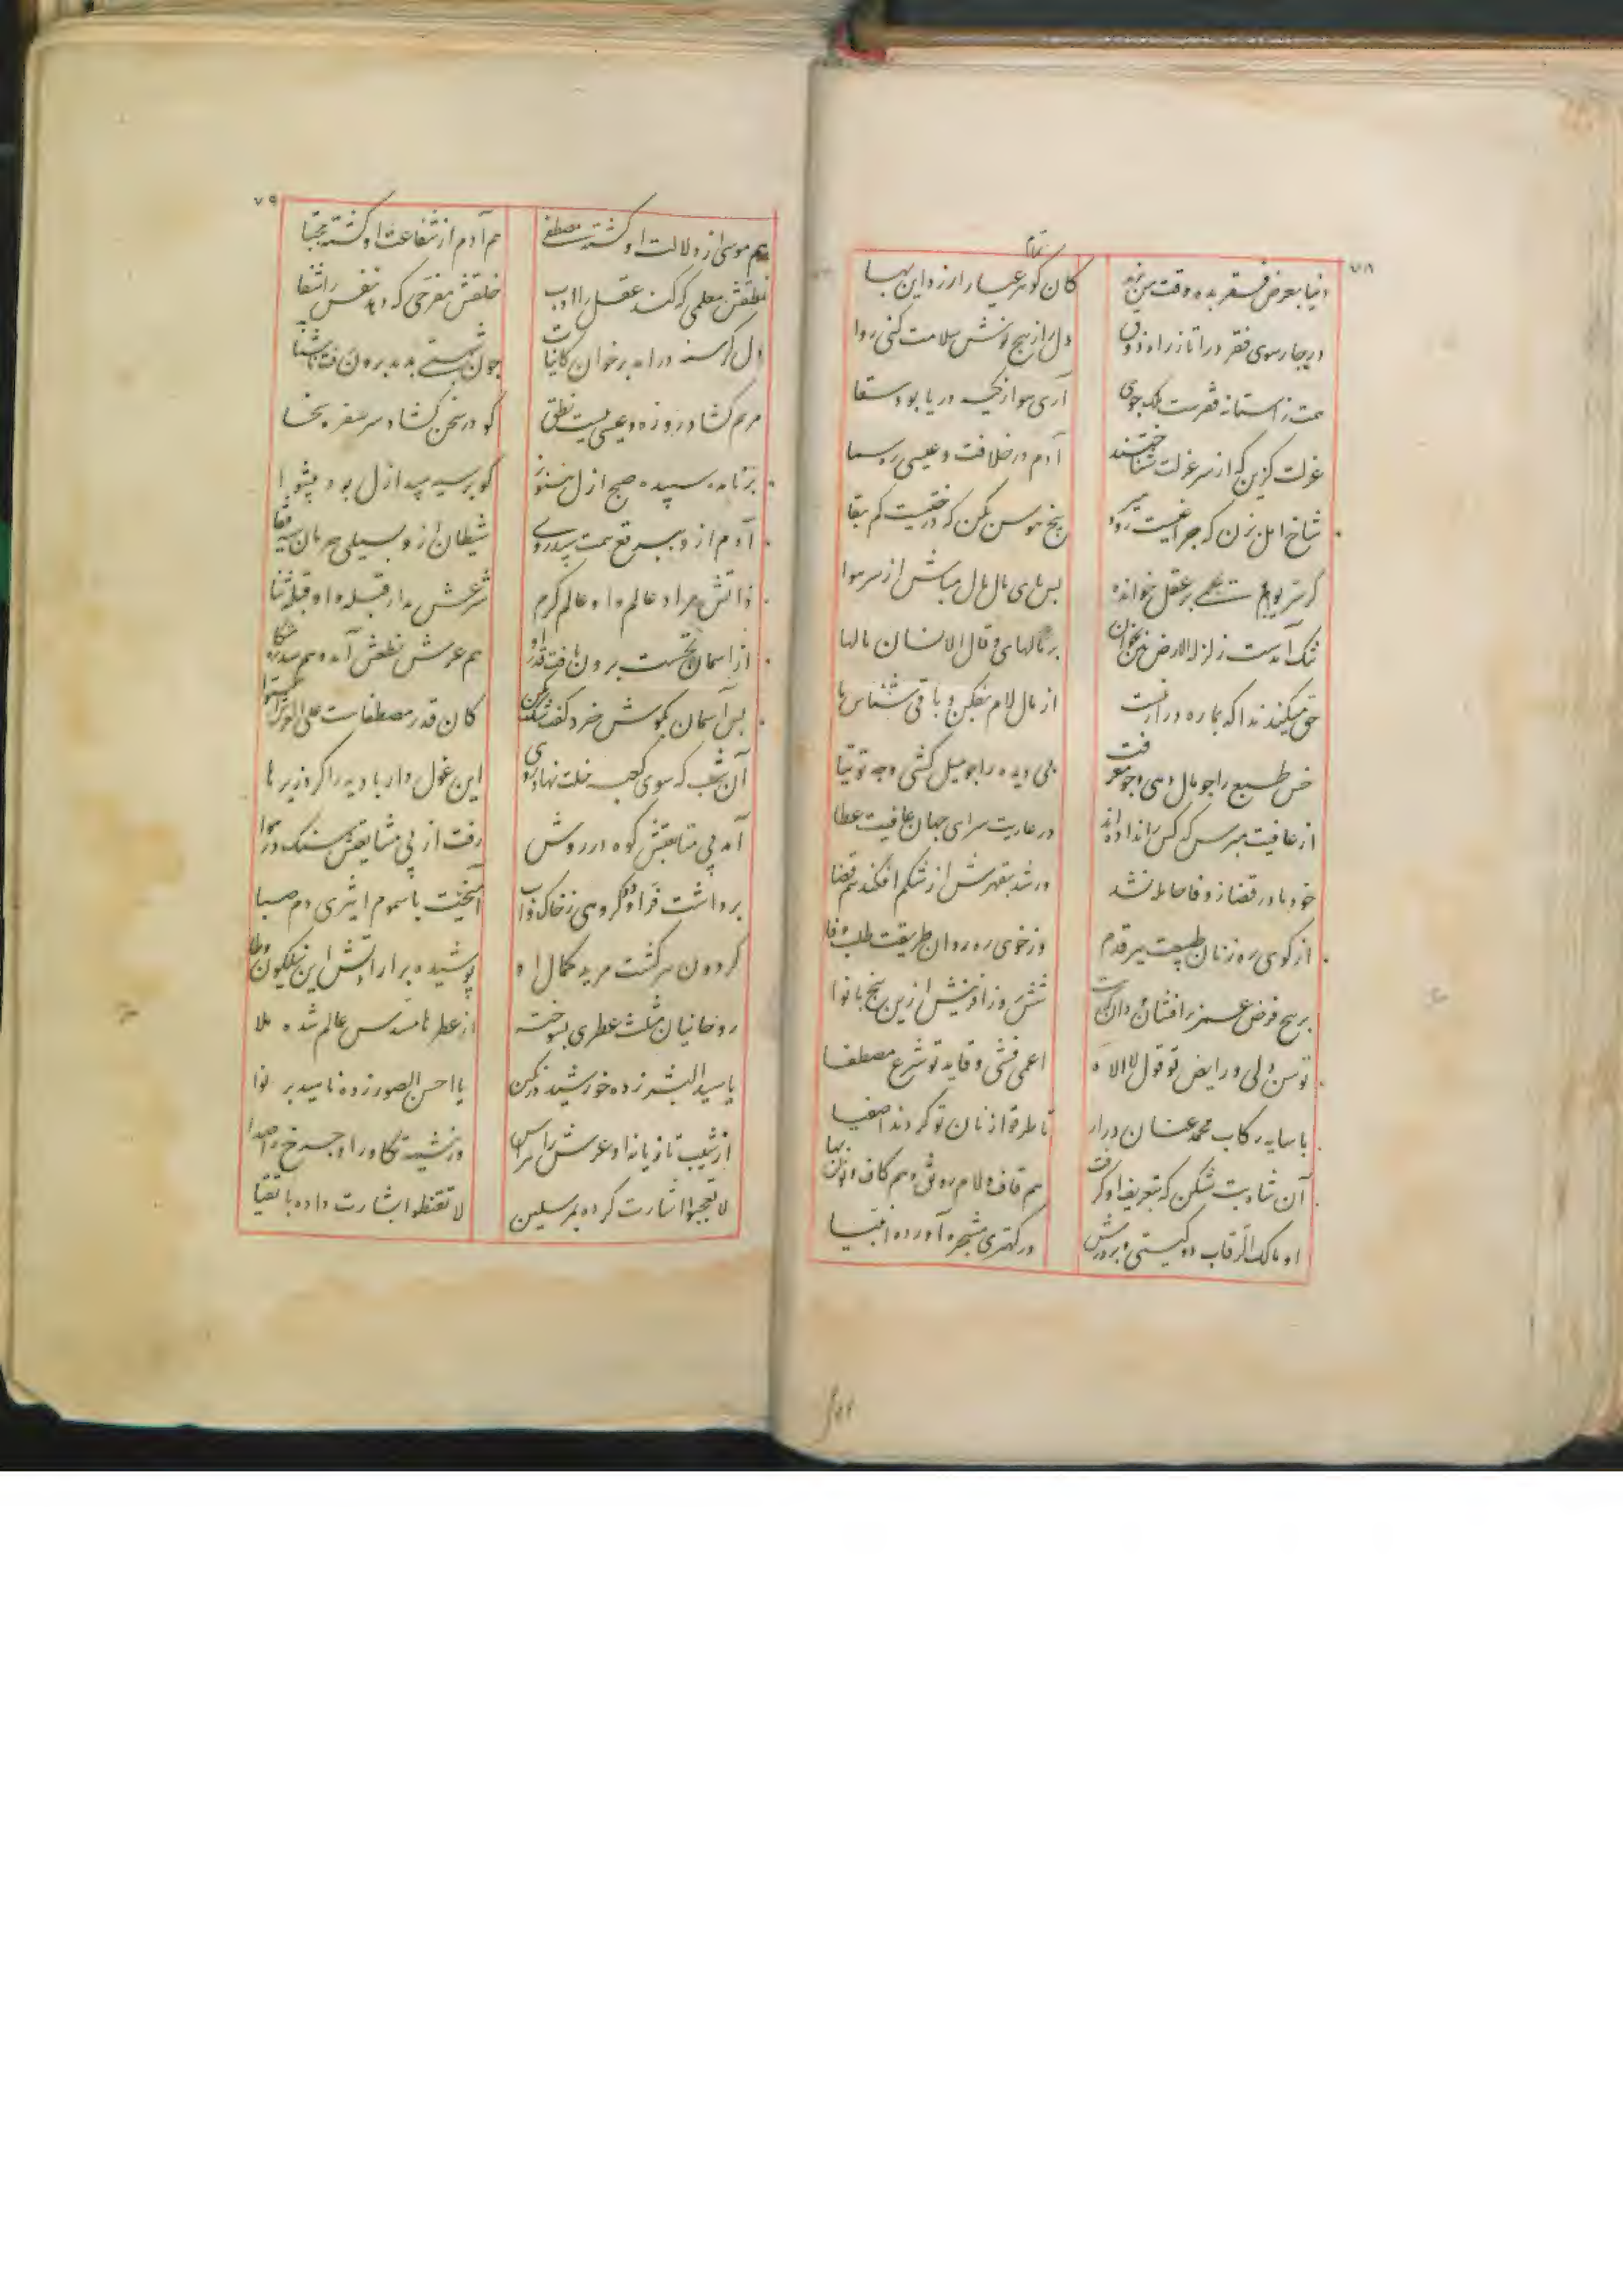 ۷۸
تمام
دنیا بعرض فقر بده وقت من یزید کان کوهر عیار ارزد این بها
در چارسوی فقر درا تا ز راه ذوق دل را ز پنج نوش سلامت کنی روا
همت ز آستانه فقرست ملک جوی آری هوا ز کیسه دریا بود سقا
عزلت کزین که از سر عزلت شناختند آدم در خلافت و عیسی ره سما
شاخ امل بزن که چراغیست زود میر بیخ هوس بکن که درختیست کم بقا
کر سر یوم یحمی بر عقل خوانده پس پای مال مال مباش از سر هوا
تنک آمدست زلزلة الارض هین بخوان بر مالها و قال الانسان مالها
حق میکند ندا که بما ره دراز نیست از مال لام بفکن و باقی شناس ما
خس طبع را چو مال دهی وچو معرفت بی دیده را چو میل کشی وچه توتیا
از عافیت مپرس که کس را نداده اند در عاریت سرای جهان عافیت عطا
خود مادر قضا ز وفا حامله نشد ور شد بقهرش از شکم افکند هم قضا
از کوی ره زنان طبیعت ببر قدم وز خوی ره روان طریقت طلب وفا
بر پنج فرض عمر برافشان و دان که هست شش روز آفرینش ازین پنج با نوا
توسن دلی و رایض تو قول لا اله اعمی فشی و قاید تو شرع مصطفا
با سایه رکاب محمد عنان درار تا طرقوا زنان تو کردند اصفیا
آن شاه بت شکن که بتعریف او کرفت هم قاف و لام رونق و هم کاف و نون بها
او مالک الرقاب دو کیتی و بر درش در کهتری مشجره آورده انبیا
۷۹
هم موسی از دلالت او کشته مصطفی هم آدم از شفاعت او کشته مجتبا
نطقش معلمی که کند عقل را ادب خلقش مفرحی که دهد نفس را شفا
دل کرسنه درامد بر خوان کاینات چون شبهتی بدید برون رفت ناشتا
مریم کشاده روزه و عیسی ببست نطق کو در سخن کشاده سر سفره سخا
بر نامده سپیده صبح ازل هنوز کو بر سیه سپید ازل بود پیشوا
آدم ازو ببرقع همت سپیدروی شیطان ازو بسیلی حرمان سیه قفا
ذاتش مراد عالم و او عالم کرم شرعش مدار قبله و او قبله ثنا
از آسمان نخست برون تافت قدر او هم عرش نطعش آمد و هم سدره متکا
پس آسمان بکوش خرد کفت شک مکن کان قدر مصطفاست علی العرش استوا
آن شب که سوی کعبه خلت نهاد روی این غول دار بادیه را کرد زیر پا
آمد پی متابعتش کوه در روش رفت از پی مشایعتش سنک در هوا
برداشت فر او دو کروهی ز خاک و آب آمیخت با سموم اثیری دم صبا
کردون سر کشت مرید کمال او پوشیده بر ارادتش این نیلکون وطا
روحانیان مثلث عطری بسوخته از عطر نامسدس عالم شده ملا
یا سید البشر زده خورشید بر نکین یا احسن الصور زده ناهید بر نوا
از شیب تازیانه او عرش را هراس وز شیهه تکاور او چرخ را صدا
لا تعجبوا اشارت کرده بمرسلین لا تقنطوا بشارت داده باتقیا